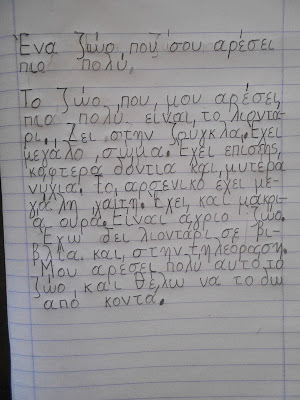 Ένα ζώο που σου αρέσει
πιο πολύ.
Το ζώο που μου αρέσει
πιο πολύ είναι το λιοντά-
ρι. Ζει στην ζούγκλα. Έχει
μεγάλο σώμα. Έχει επίσης,
κοφτερά δόντια και μυτερά
νύχια. το αρσενικό έχει με-
γάλη χαίτη. Έχει και μακρι-
ά ουρά. Είναι άγριο ζώο.
Έχω δει λιοντάρι σε βι-
βλία και στην τηλεόραση.
Μου αρέσει πολύ αυτό το
ζώο και θέλω να το δω
από κοντά.